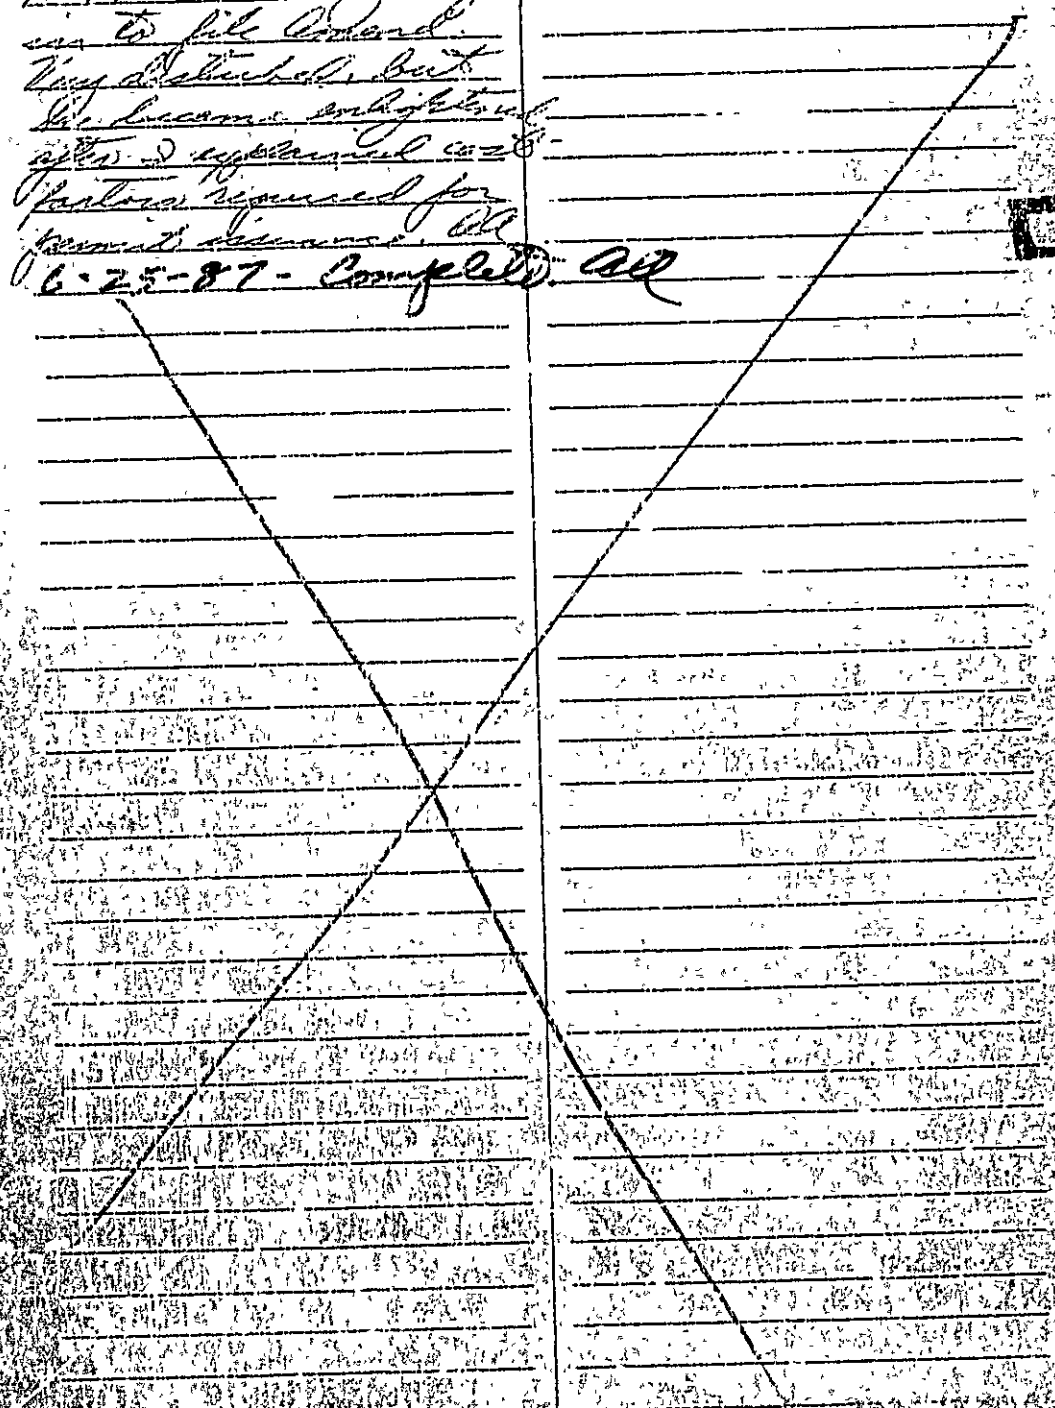 in to file amend.
Very disturbed, but
he became enlightened
after I explained cost
factors required for
permit issuance.
6-25-87- Complete